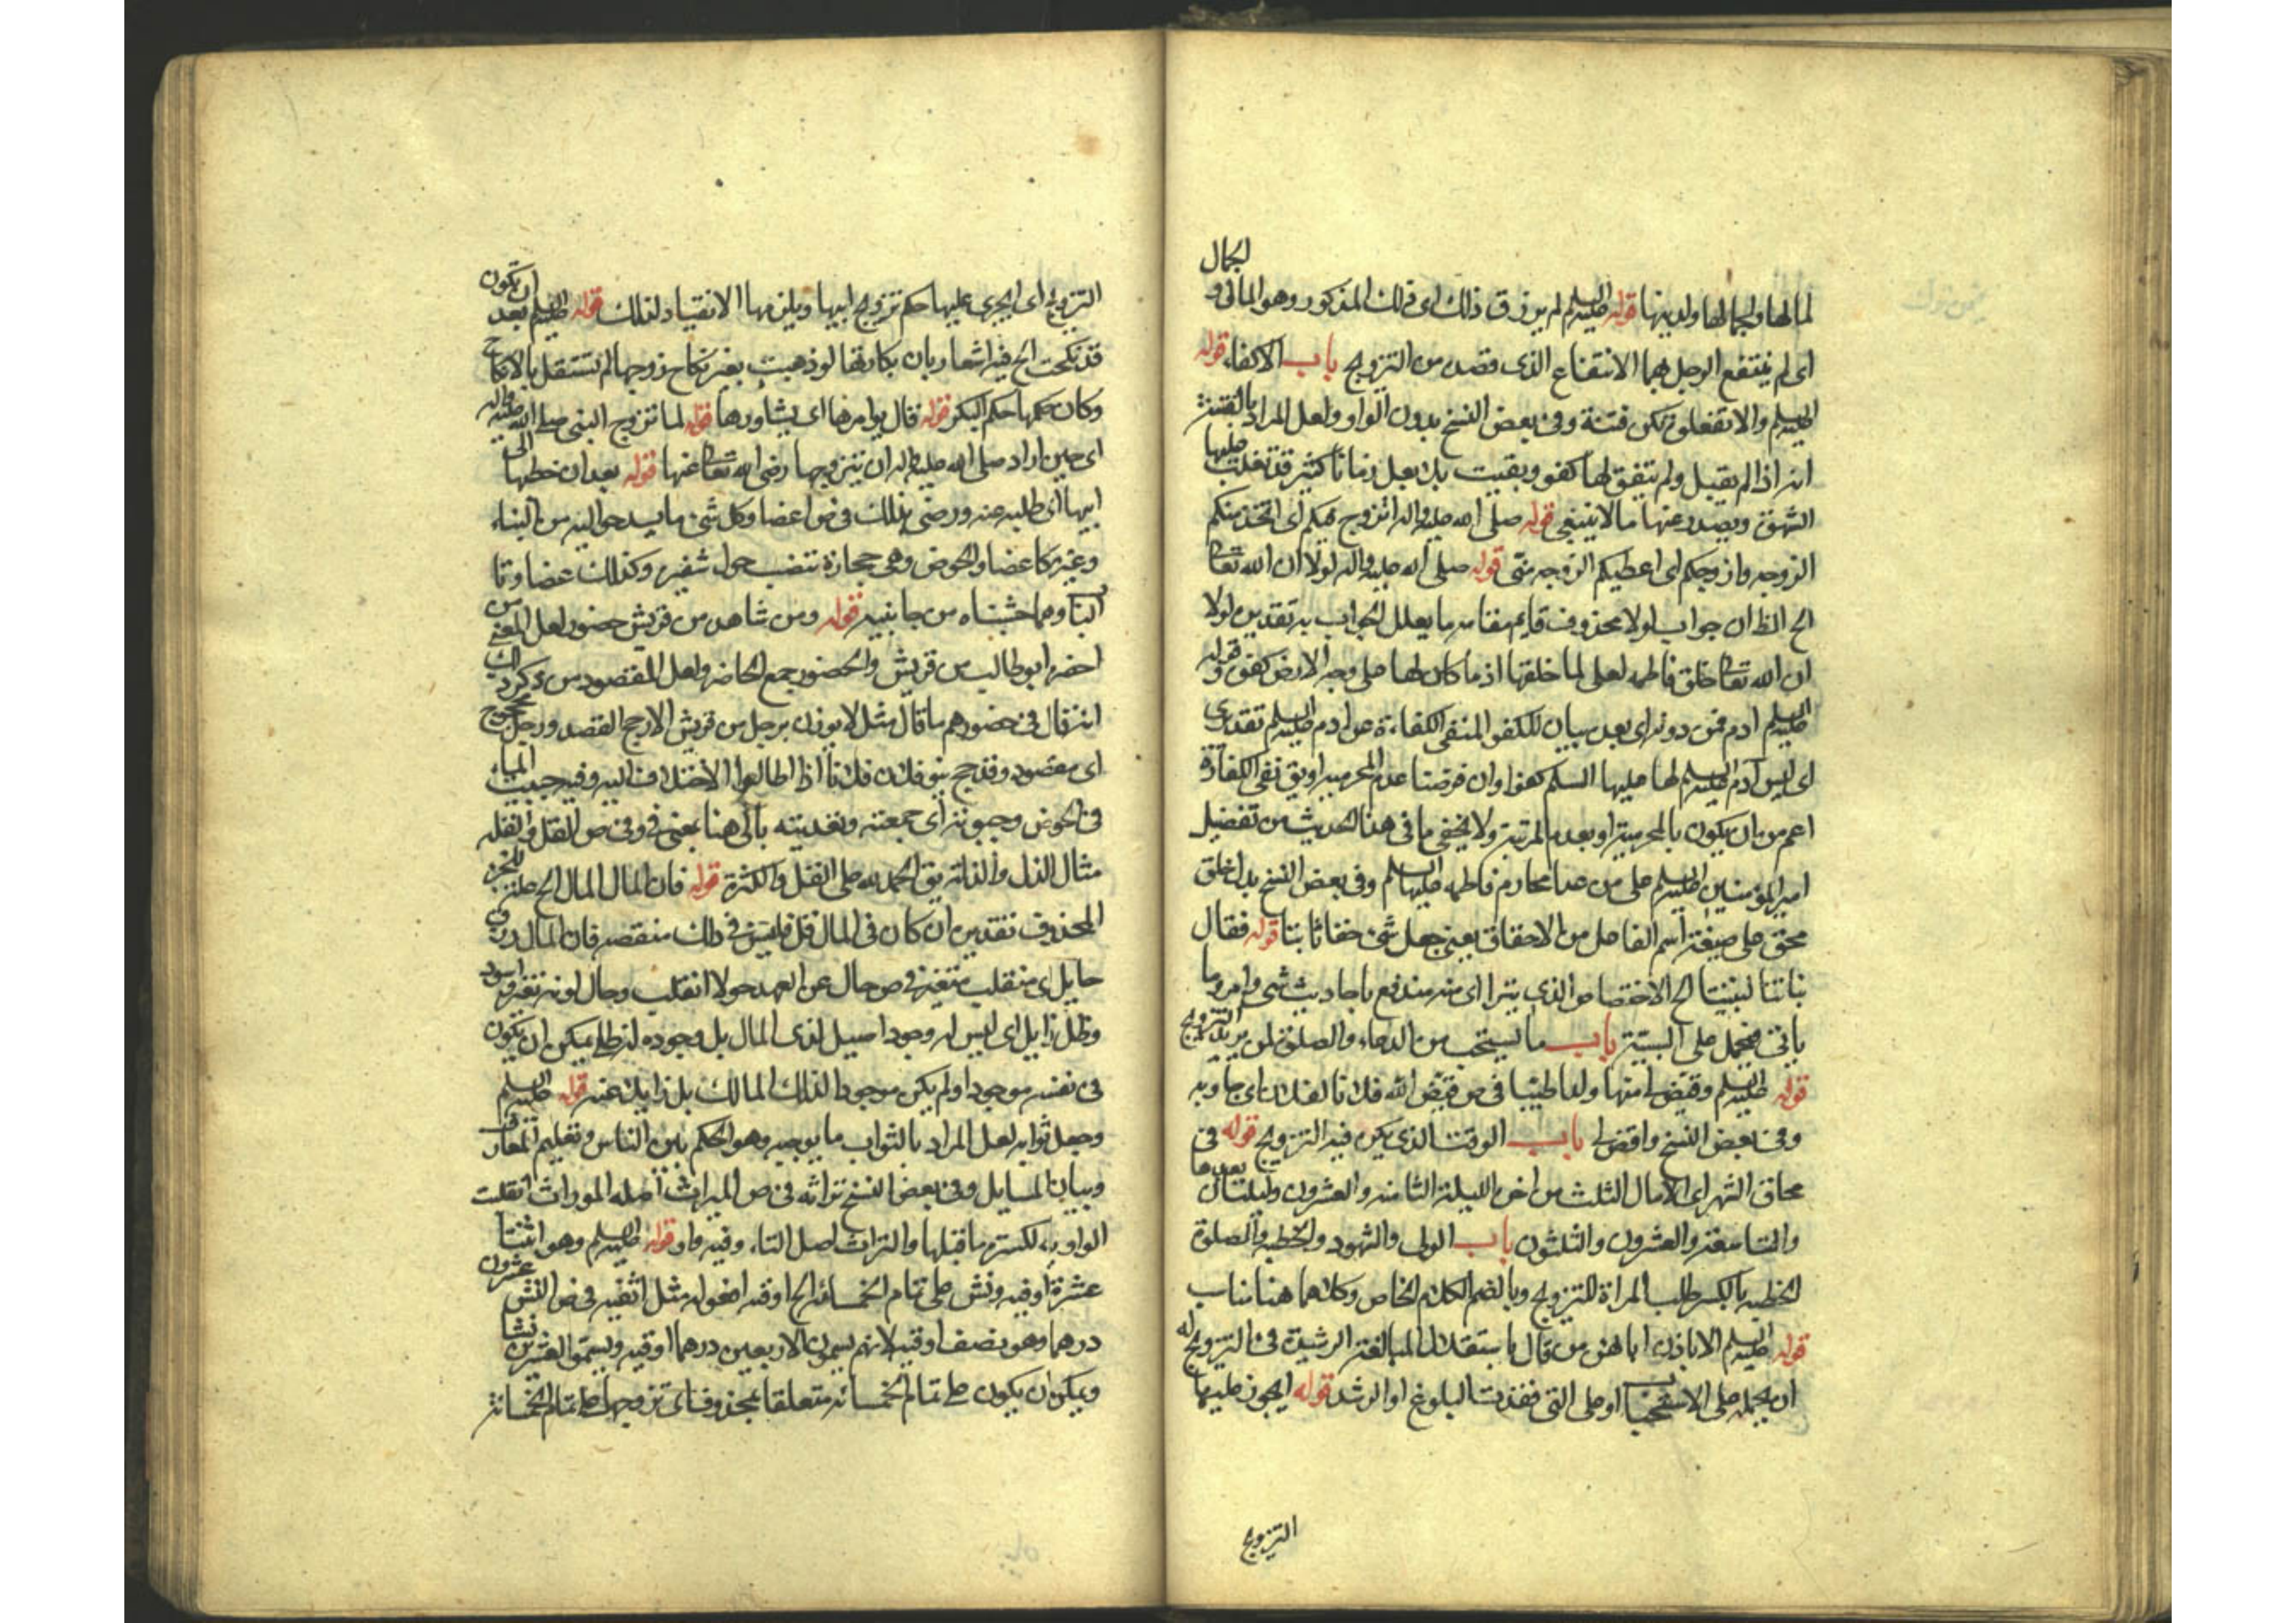 لمالها ولجمالها ولدينها قوله عليه السلم لم يرزق ذلك اى ذلك المذكور وهو المال و الجمال
اى لم ينتفع الرجل بهما الانتفاع الذى قصد من التزويج باب الاكفاء قوله
عليه السلم والا تفعلوه تكن فتنة وفى بعض النسخ بدون الواو ولعل المراد بالفتنة
انه اذا لم يقبل ولم يتفق لها كفو وبقيت بلا بعل زمانا كثير قد تغلب عليها
الشهوة ويصدر عنها ما لا ينبغى قوله صلى الله عليه واله اتزوج فيكم اى اتخذ منكم
الزوجه وازوجكم اى اعطيكم الزوجه منى قوله صلى الله عليه واله لولا ان الله تعا
الح الظ ان جواب لولا محذوف قايم مقامه ما يعلل الجواب به تقديره لولا
ان الله تعا خلق فاطمه لعلى لما خلقها اذ ما كان لها على وجه الارض كفو و قوله
عليه السلم ادم فمن دونه اى بعد بيان للكفو المنفى الكفاءة عن ادم عليه السلم تقديرى
اى ليس ادم عليه السلم لها عليها السلم كفوا وان فرضنا عدم المحرميه او يق نفى الكفاءة
اعم من ان يكون بالمحرمية او بعدم المرتبة ولا يخفى ما فى هذا الحديث من تفضيل
امير المؤمنين عليه السلم على من عدا محارم فاطمه عليها السلم وفى بعض النسخ بدل خلق
محق على صيغة اسم الفاعل من الاحقاق بمعنى جعل شئ حقا ثابتا قوله فقال
بناتنا لبنينا الح الاختصاص الذى يترا اى منه مندفع باحاديث شتى وامر وما
ياتى فيحمل على السنية باب ما يستحب من الدعاء والصلوة لمن يريد التزويج
قوله عليه السلم وقيض لى منها ولدا طيبا فى ص قيض الله فلانا لفلان اى جاء به
وفى بعض النسخ واقض لى باب الوقت الذى يكره فيه التزويج قوله فى
محاق الشهر اى الليال الثلث من اخره الليلة الثامنه والعشرون وليلتان بعدها
والتاسعة والعشرون والثلثون باب الولى والشهود والخطبه والصلوة
الخطبه بالكسر طلب المراة للتزويج وبالضم الكلام الخاص وكلاهما هنا مناب
قوله عليه السلم الا باذن ابائهن من قال باستقلال البالغة الرشيدة فى التزويج له
ان يحمله على الاستحباب او على التى فقدت البلوغ او الرشد قوله ايجوز عليها
التزويج
التزويج اى ايجرى عليها حكم تزويج ابيها ويلزمها الانقياد لذلك قوله عليه السلم بعد ان تكون
قد نكحت الح فيه اشعار بان بكارتها لو ذهبت بغير نكاح زوجها لم تستقل بالانكاح
وكان حكمها حكم البكر قوله قال يوامرها اى يشاورها قوله لما تزوج النبى صلى الله عليه واله
اى حين اراد صلى الله عليه واله ان يتزوجها رضى الله تعا عنها قوله بعد ان خطبها الى
ابيها اى طلبه عنه ورضى بذلك فى ص اعضاد كل شئ ما يسد حواليه من البناء
وغيره كاعضاد الحوض وهى حجارة تنصب حول شفيره وكذلك عضادتا
الباب وهما خشبتاه من جانبيه قوله ومن شاهد من قريش حضور لعل المعنى من
احضره ابو طالب من قريش والحضور جمع الحاضر ولعل المقصود من ذكر ذلك
انه قال فى حضورهم ما قال مثل لا يوزن برجل من قريش الا رجح القصد ورجل محجوج
اى مقصود وقد حج بنو فلان فلانا اذا اطالوا الاختلاف اليه وفيه جبيت الماء
فى الحوض وجبوته اى جمعته وتعديته بالى هنا بمعنى فى وفى ص القل والقله
مثال الذل والذلة يق الحمد لله على القل والكثرة قوله فان المال المال الح علة للجزء
المحذوف تقديره ان كان فى المال قل فليس فى ذلك منقصه فان المال رزق
حايل اى منقلب متغير فى ص حال عن العهد حولا انقلب وحال لونه تغير واسود
وظل زايل اى ليس له وجود اصيل لذى المال بل وجوده له ظلى يمكن ان يكون
فى نفسه موجودا ولم يكن موجودا لذلك المالك بل زايلا عنه قوله عليه السلم
وجعل ثوابه لعل المراد بالثواب ما يوجبه وهو الحكم بين الناس وتعليم المعارف
وبيان المسايل وفى بعض النسخ تراثه فى ص الميراث اصله الموراث انقلبت
الواو ياء لكسرة ما قبلها والتراث اصل التاء وفيه واو قوله عليه السلم وهو اثنتا
عشرة اوقيه ونش على تمام الخمسائه الح اوقيه افعوله مثل اثفيه فى ص النش عشرون
درهما وهو نصف اوقيه لانهم يسمون الاربعين درهما اوقيه ويسمو العشرين نشا
ويمكن ان يكون على تمام الخمسائه متعلقا بمحذوف اى تزوجها على تمام الخمسائه